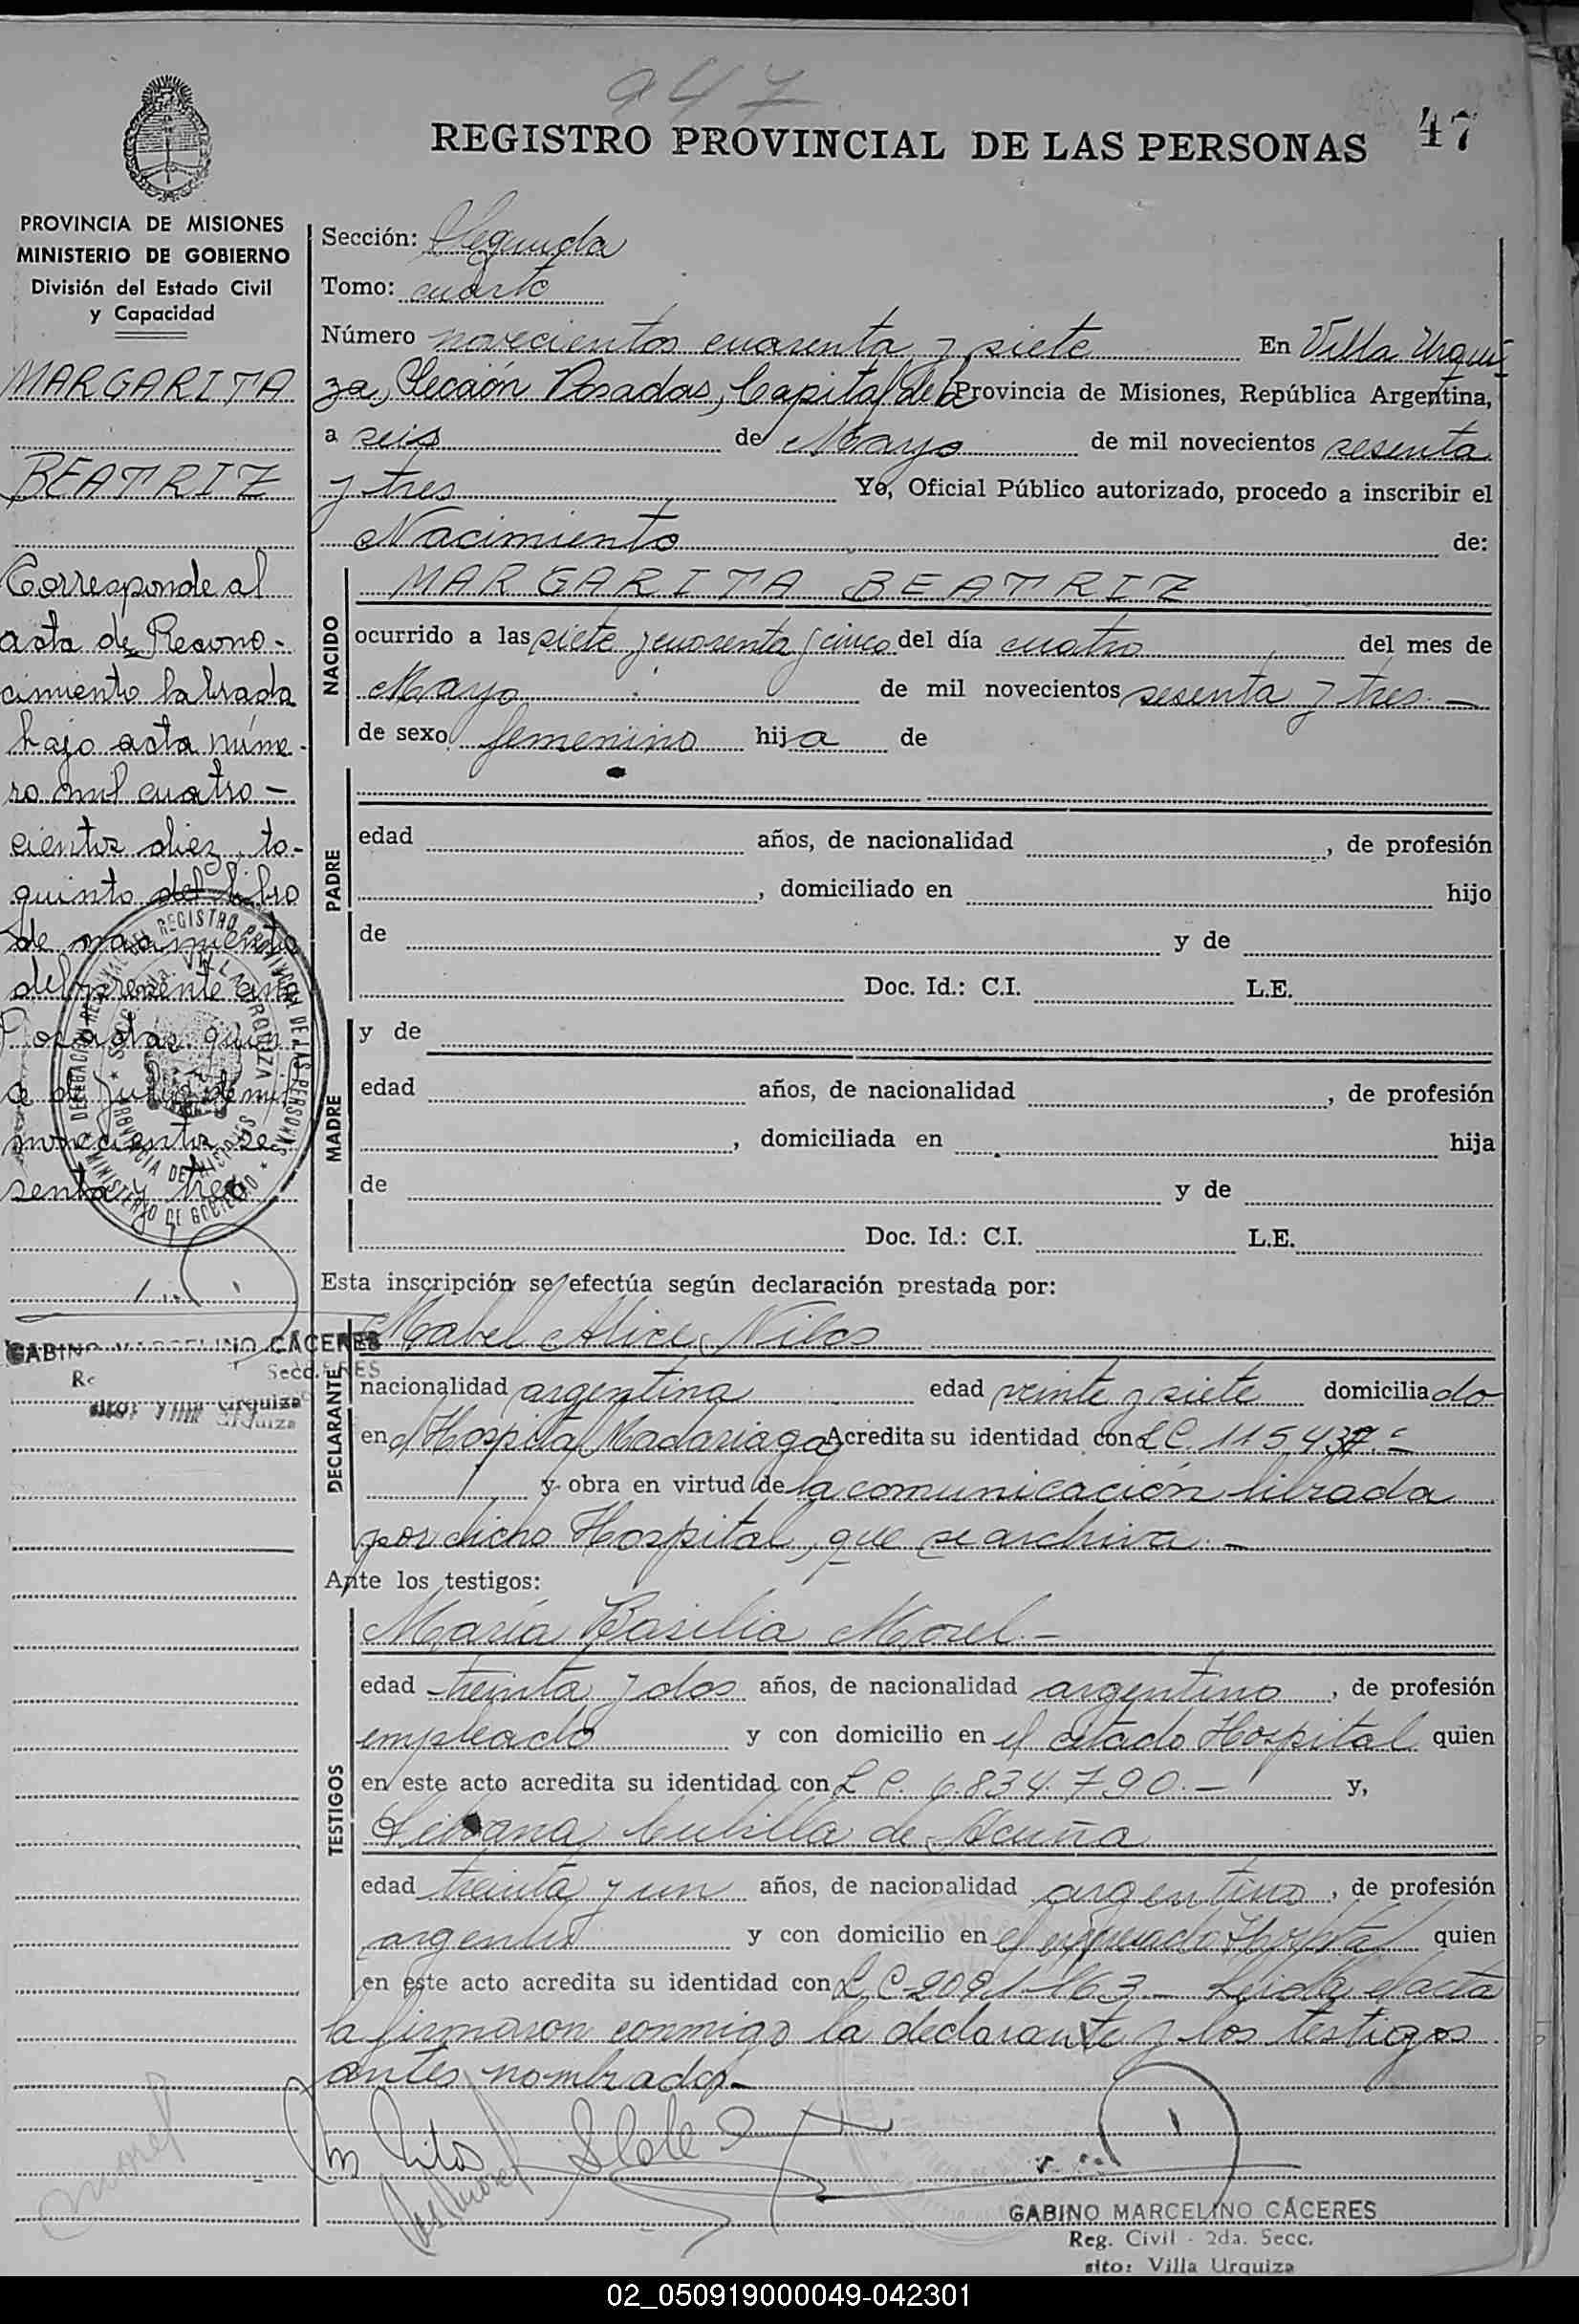 947
REGISTRO PROVINCIAL DE LAS PERSONAS 47
PROVINCIA DE MISIONES
MINISTERIO DE GOBIERNO
División del Estado Civil
y Capacidad
MARGARITA
BEATRIZ
Corresponde al
acta de Recono-
cimiento labrada
bajo acta núme-
ro mil cuatro-
cientos diez, to-
quinto del libro
de nacimiento
del presente
Posadas, quin
ce de Julio de mil
novecientos se
senta y tres
GABINO MARCELINO CÁCERES
Secc.
sito: Villa Urquiza
Sección: Segunda
Tomo: cuarto
Número novecientos cuarenta y siete En Villa Urqui-
za, Sección Posadas, Capital de la Provincia de Misiones, República Argentina,
a seis de Mayo de mil novecientos sesenta
y tres Yo, Oficial Público autorizado, procedo a inscribir el
Nacimiento de:
NACIDO
MARGARITA BEATRIZ
ocurrido a las siete y cuarenta y cinco del día cuatro del mes de
Mayo de mil novecientos sesenta y tres.—
de sexo femenino hija de
PADRE
edad años, de nacionalidad , de profesión
, domiciliado en hijo
de y de
Doc. Id.: C.I. L.E.
MADRE
y de
edad años, de nacionalidad , de profesión
, domiciliada en hija
de y de
Doc. Id.: C.I. L.E.
Esta inscripción se efectúa según declaración prestada por:
DECLARANTE
Mabel Alice
nacionalidad argentina edad veinte y siete domiciliado
en el Hospital Madariaga Acredita su identidad con L C. 115.437.-
y obra en virtud de la comunicación librada
por dicho Hospital, que se archiva.—
Ante los testigos:
TESTIGOS
María Basilia Morel.—
edad treinta y dos años, de nacionalidad argentino, de profesión
empleado y con domicilio en el citado Hospital quien
en este acto acredita su identidad con L C. 6.834.790.— y,
Cubilla de Acuña
edad treinta y un años, de nacionalidad argentino, de profesión
y con domicilio en el Hospital quien
en este acto acredita su identidad con L C Leída el acta
la firmaron conmigo la declarante y los testigos
antes nombrados.—
GABINO MARCELINO CÁCERES
Reg. Civil - 2da. Secc.
sito: Villa Urquiza
02_050919000049-042301